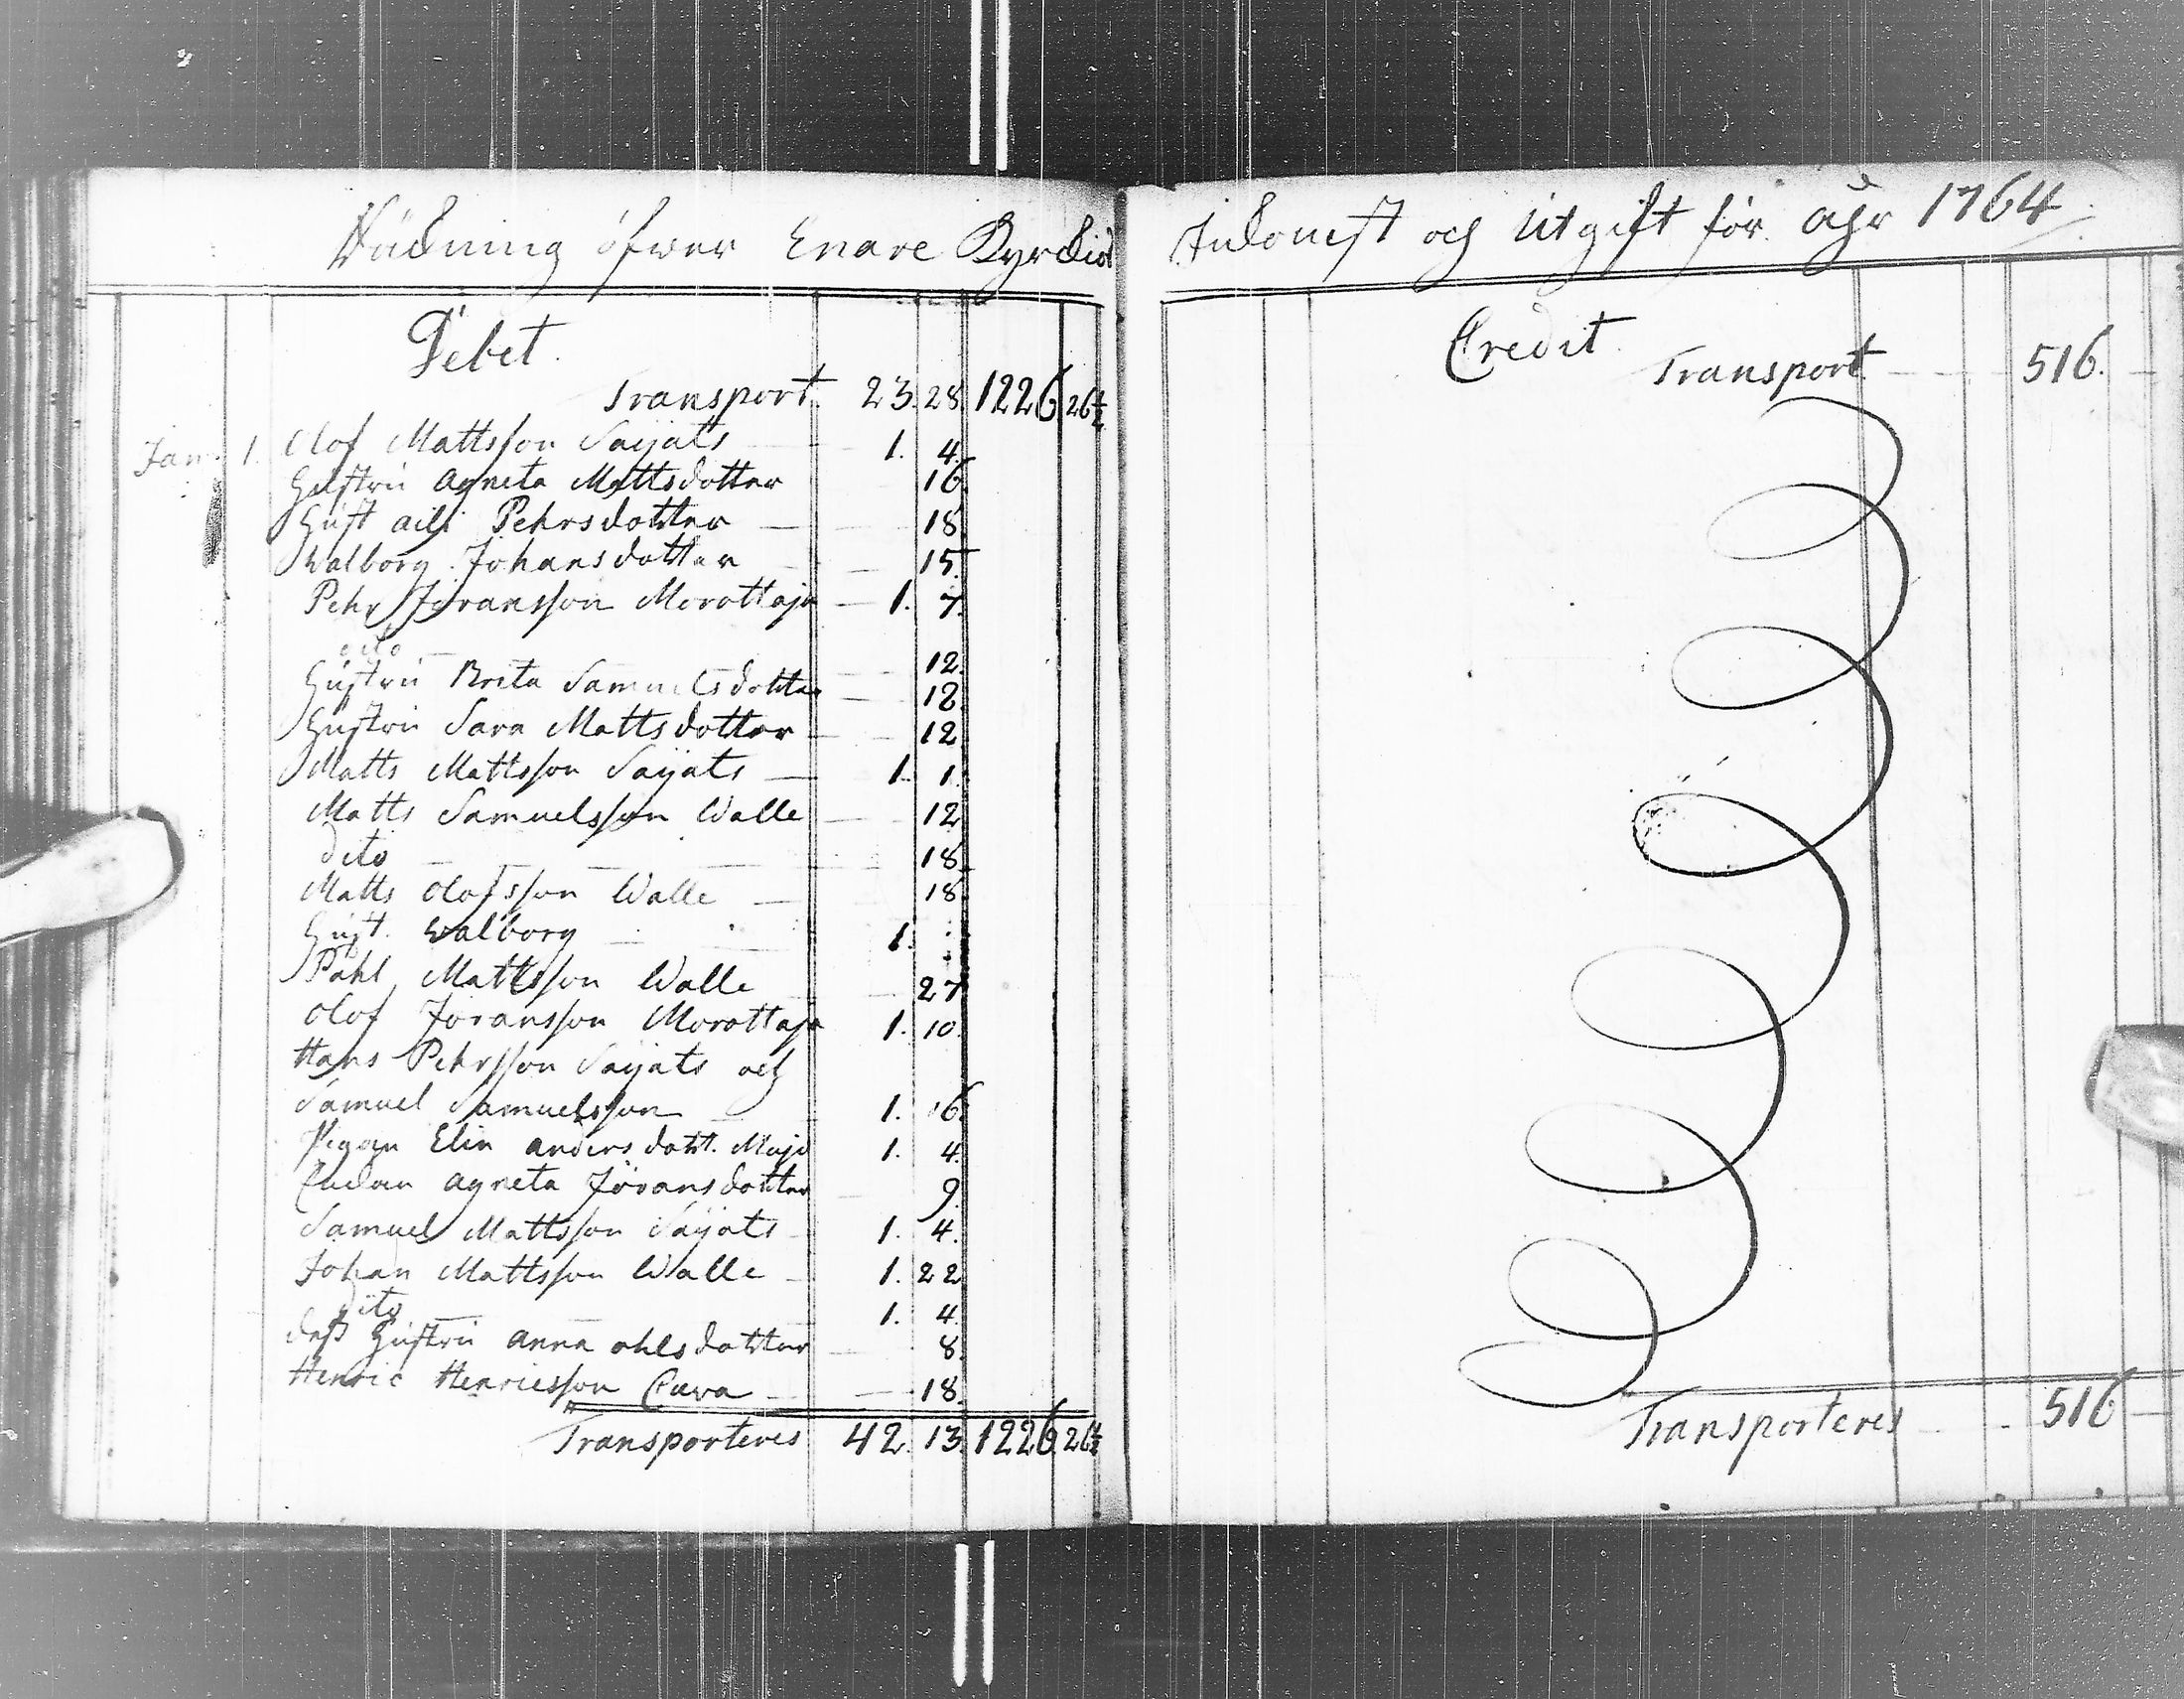 Räkning öfwer Enare Kyrckio
Debet.
Transport. 23. 28. 1226. 26 1/2
Jan. 1. Olof Mattsson Saijats 1. 4.
Hustru Agneta Mattsdotter 16.
Hust. aili Pehrsdotter 18.
Walborg Johansdotter 15.
Pehr Joransson Morottaja 1. 7.
dito 12.
Hustru Brita Samuelsdotter 12.
Hustru Sara Mattsdotter 12.
Matts Mattsson Saijats 1. 1.
Matts Samuelsson Walle 12.
dito 18.
Matts Olofsson Walle 18.
Hust. Walborg 1.
Pahl Mattsson Walle 27.
Olof Joransson Morottaja 1. 10.
Hans Pehrsson Saijats och
Samuel Samuelsson 1. 16.
Pigan Elin anders dott. Mujo 1. 4.
Enckan agneta Jöransdotter 9.
Samuel Mattsson Saijats 1. 4.
Johan Mattsson Walle 1. 22
dito 1. 4.
dess Hustru anna ohlsdotter 8.
Henric Henricsson Cuva 18.
Transporteres 42. 13. 1226. 26 1/2
Inkomst och Utgift för åhr 1764.
Credit
Transport 516.
Transporteres 516